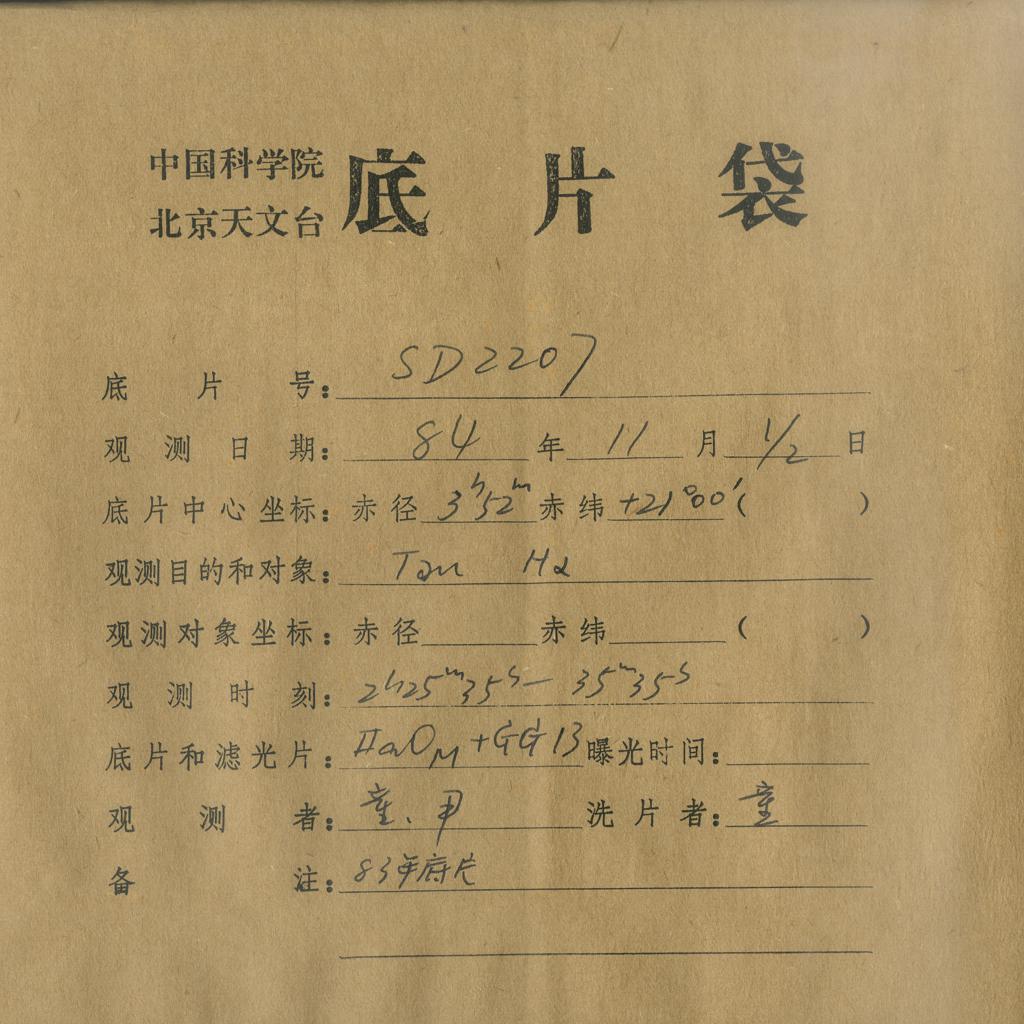 中国科学院
北京天文台
底片袋
底片号: SD2207
观测日期: 84年11月1/2日
底片中心坐标: 赤径 3h52m 赤纬 +21°00′ ( )
观测目的和对象: Tau Hα
观测对象坐标: 赤径 赤纬 ( )
观测时刻: 2h25m35s — 35m35s
底片和滤光片: IIaOM+GG13 曝光时间:
观测者: 童、 洗片者: 童
备注: 83年底片